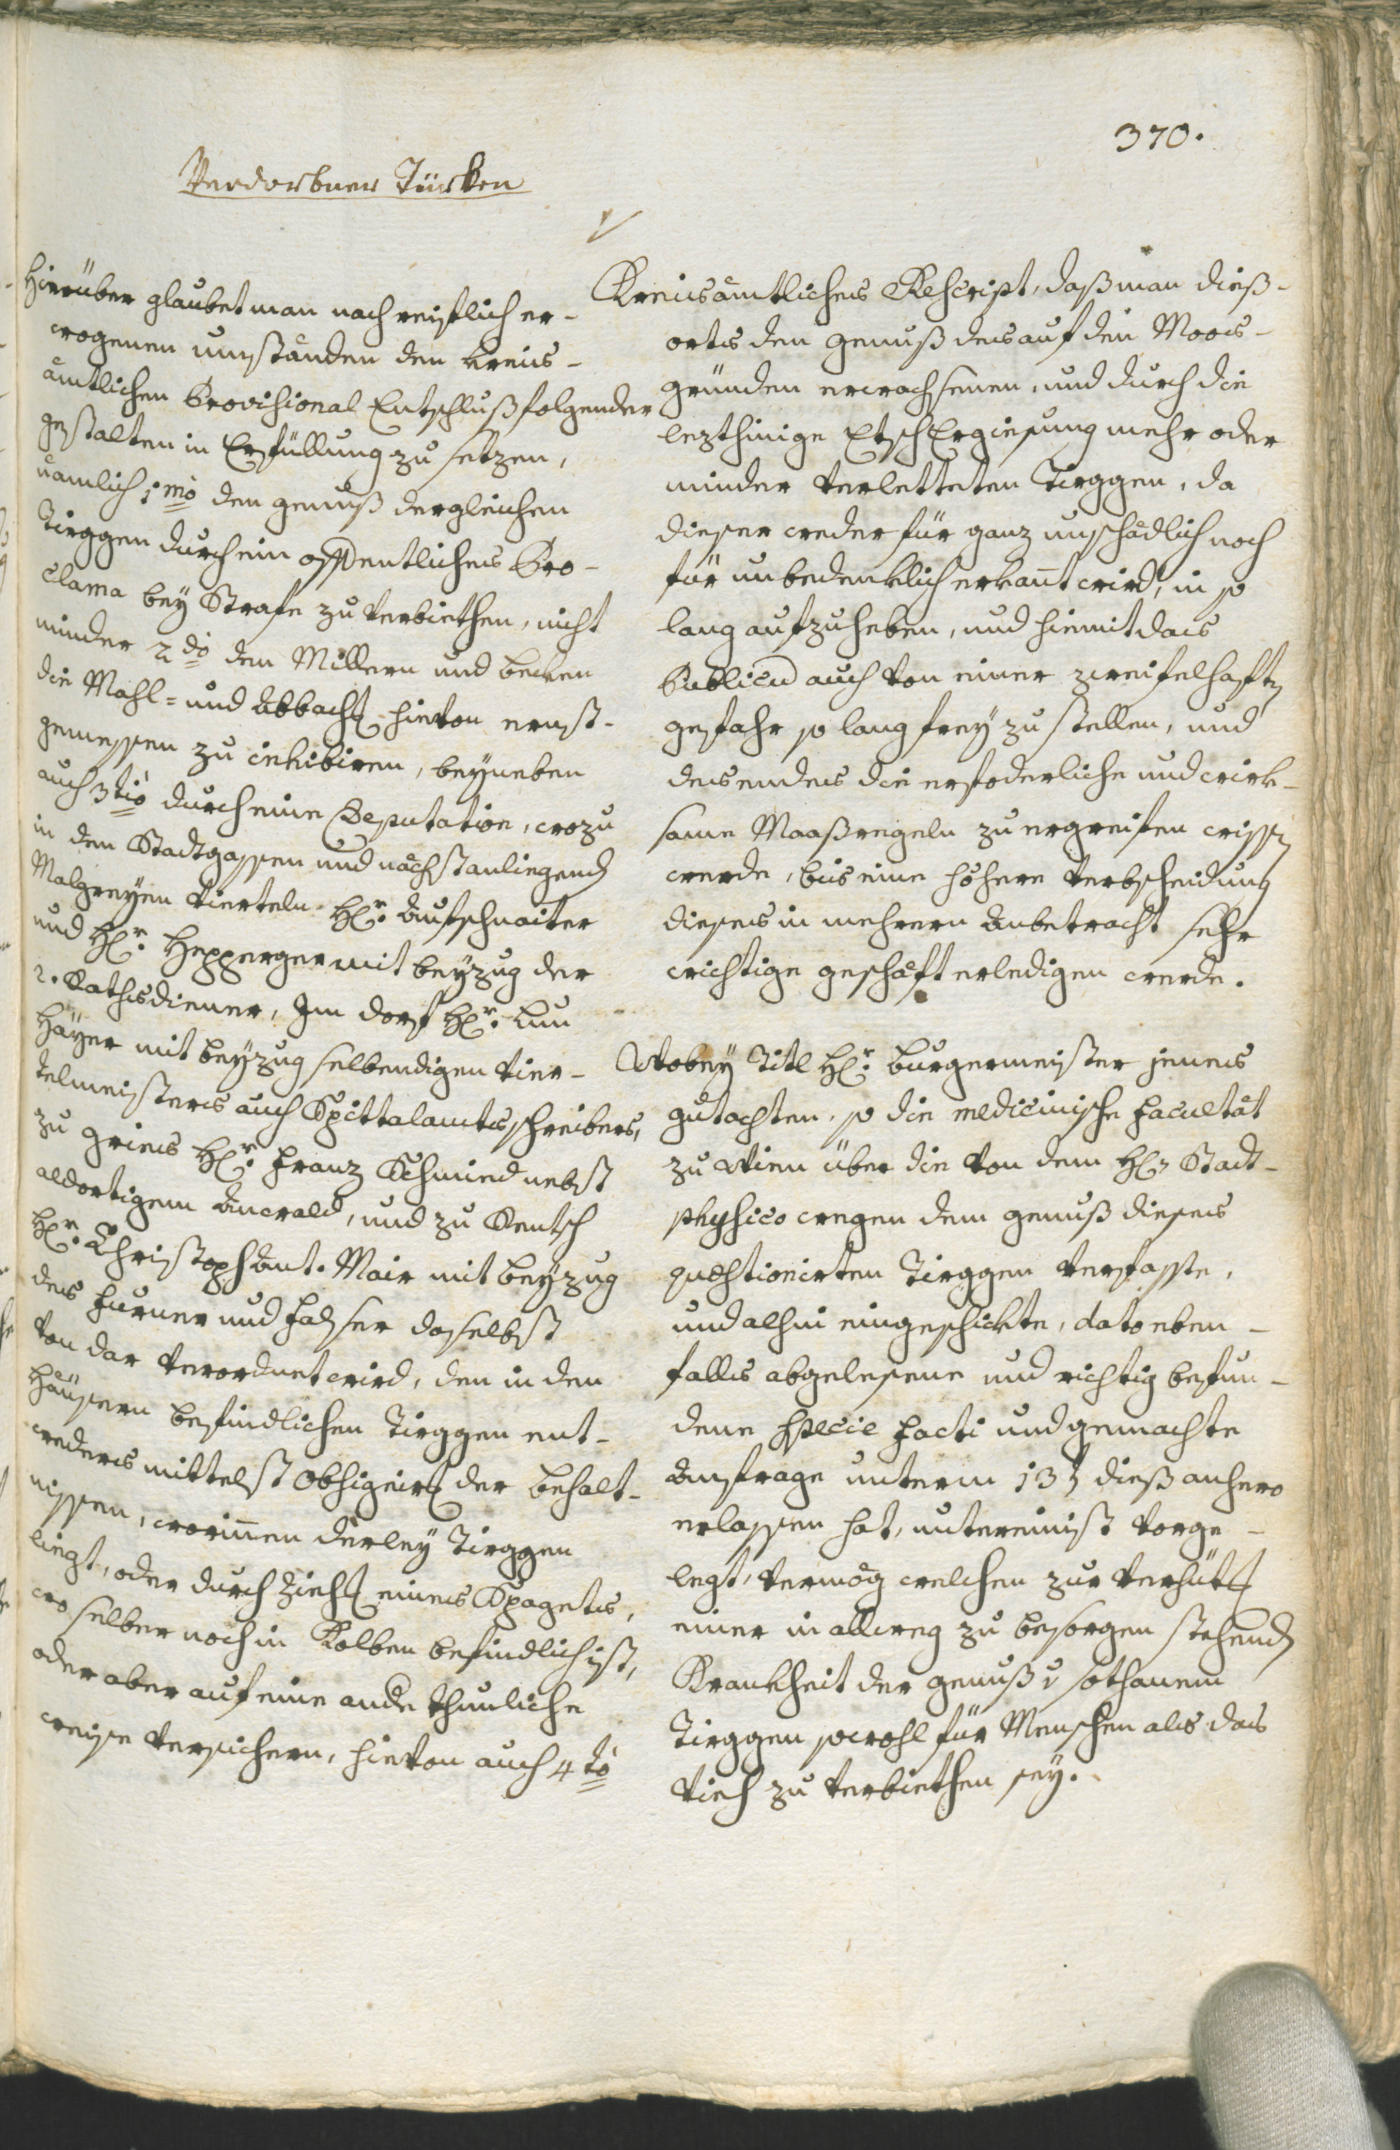 370.
Verdorbner Türken
Hierüber glaubet man nach reiflich er-
wogenen umständen den Kreis-
ämtlichen Provisional Entschluß folgender
gestalten in Erfüllung zu setzen,
nämlich 1mo den genuß dergleichen
Tirggen durch ein offentliches Pro-
clama bey Strafe zu verbiethen, nicht
minder 2do den Millern und becken
die Mahl- und Abbach[t] hievon ernst-
gemessen zu inhibiren, beyneben
auch 3tio durch eine Deputation, wozu
in den Stadtgassen und nächstanliegenden
Malgreyen Vierteln Hr. Aufschnaiter
und Hr. Hepperger mit beyzug der
2. Rathsdiener, Im dorf Hr.
Hayer mit beyzug selbendigen Vier-
telmeisters auch Spittalamtsschreibers,
zu gries Hr. Franz Schmied nebst
aldortigem Anwald, und zu Rentsch
Hr. Christoph Ant. Mair mit beyzug
des Furner und daselbst
von dar verordnet wird, den in den
Häusern befindlichen Tirggen ent-
weders mittelst Obsignirung der behalt-
nissen, worinnen derley Tirggen
liegt, oder durch Ziehung eines Spagetes,
wo selber noch in Kolben befindlich ist,
oder aber auf eine ande thunliche
weise versichern, hievon auch 4to
Kreisämtliches Rescript, daß man dieß-
orts den genuß des auf den Moos-
gründen erwachsenen, und durch die
lezthinige Etsch Ergiesung mehr oder
minder verletteten Tirggen, da
dieser weder für ganz unschädlich noch
für unbedenklich erkant wird, in so
lang aufzuheben, und hiemit das
Publicum auch von einer zweifelhaften
gefahr so lang frey zu stellen, und
des endes die erfoderliche und wirk-
same Maaßregeln zu ergreifen wissen
werde, bis eine höhere Verbscheidung
dieses in mehrern Anbetracht sehr
wichtige geschäft erledigen werde.
Wobey Titl Hr. burgermeister jenes
gutachten, so die medicinische Facultät
zu Wien über die von dem Hn Stadt-
physico wegen dem genuß dieses
questionirten Tirggen verfasste,
und alhin eingeschickte, dato eben-
falls abgelesene und richtig befun-
dene Specie Facti und gemachte
Anfrage unterm 13t dieß anhero
erlassen hat, untereinist vorge-
legt, vermög welchen zur verhütung
einer in allweg zu besorgen stehenden
Krankheit der genuß v sothanem
Tirggen sowohl für Menschen als das
Vieh zu verbiethen sey.